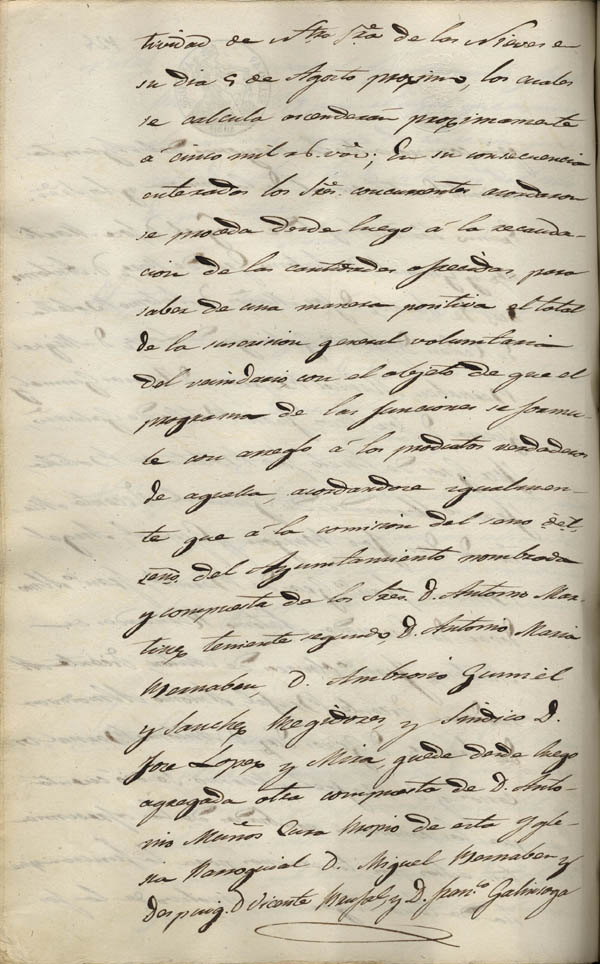 tividad de Ntra Sra de las Nieves en
su dia 5 de Agosto proximo, los cuales
se calcula ascenderán proximamente
á cinco mil rs. von; En su consecuencia
enterados los Sres. concurrentes acordaron
se proceda desde luego á la recauda-
cion de las cantidades ofrecidas, para
saber de una manera positiva el total
de la suscricion general voluntaria
del vecindario, con el objeto de que el
programa de las funciones se formu-
le con arreglo á los productos verdaderos
de aquella, acordandose igualmen-
te que á la comision del seno
del Ayuntamiento nombrada
y compuesta de los Sres. D. Antonio Mar-
tinez teniente segundo, D. Antonio Maria
Bernabeu, D. Ambrosio Gumiel
y Sanchez Regidores y Sindico D.
Jose Lopez y Mira, quede desde luego
agregada otra compuesta de D. Anto-
nio Muños Cura propio de esta Ygle-
sia Parroquial D. Miguel Bernabeu y
Despuig, D Vicente y D. Franco. Galiniega